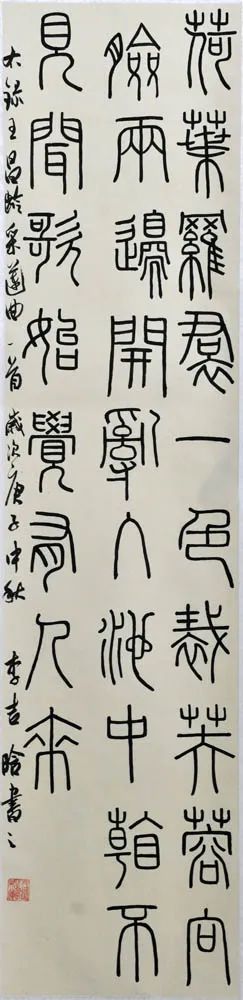 荷葉羅裠一色裁芙蓉向
臉兩邊開亂入池中看不
見聞歌始覺有人來
右録王昌齡采蓮曲一首 歲次庚子中秋 李吉晗書之